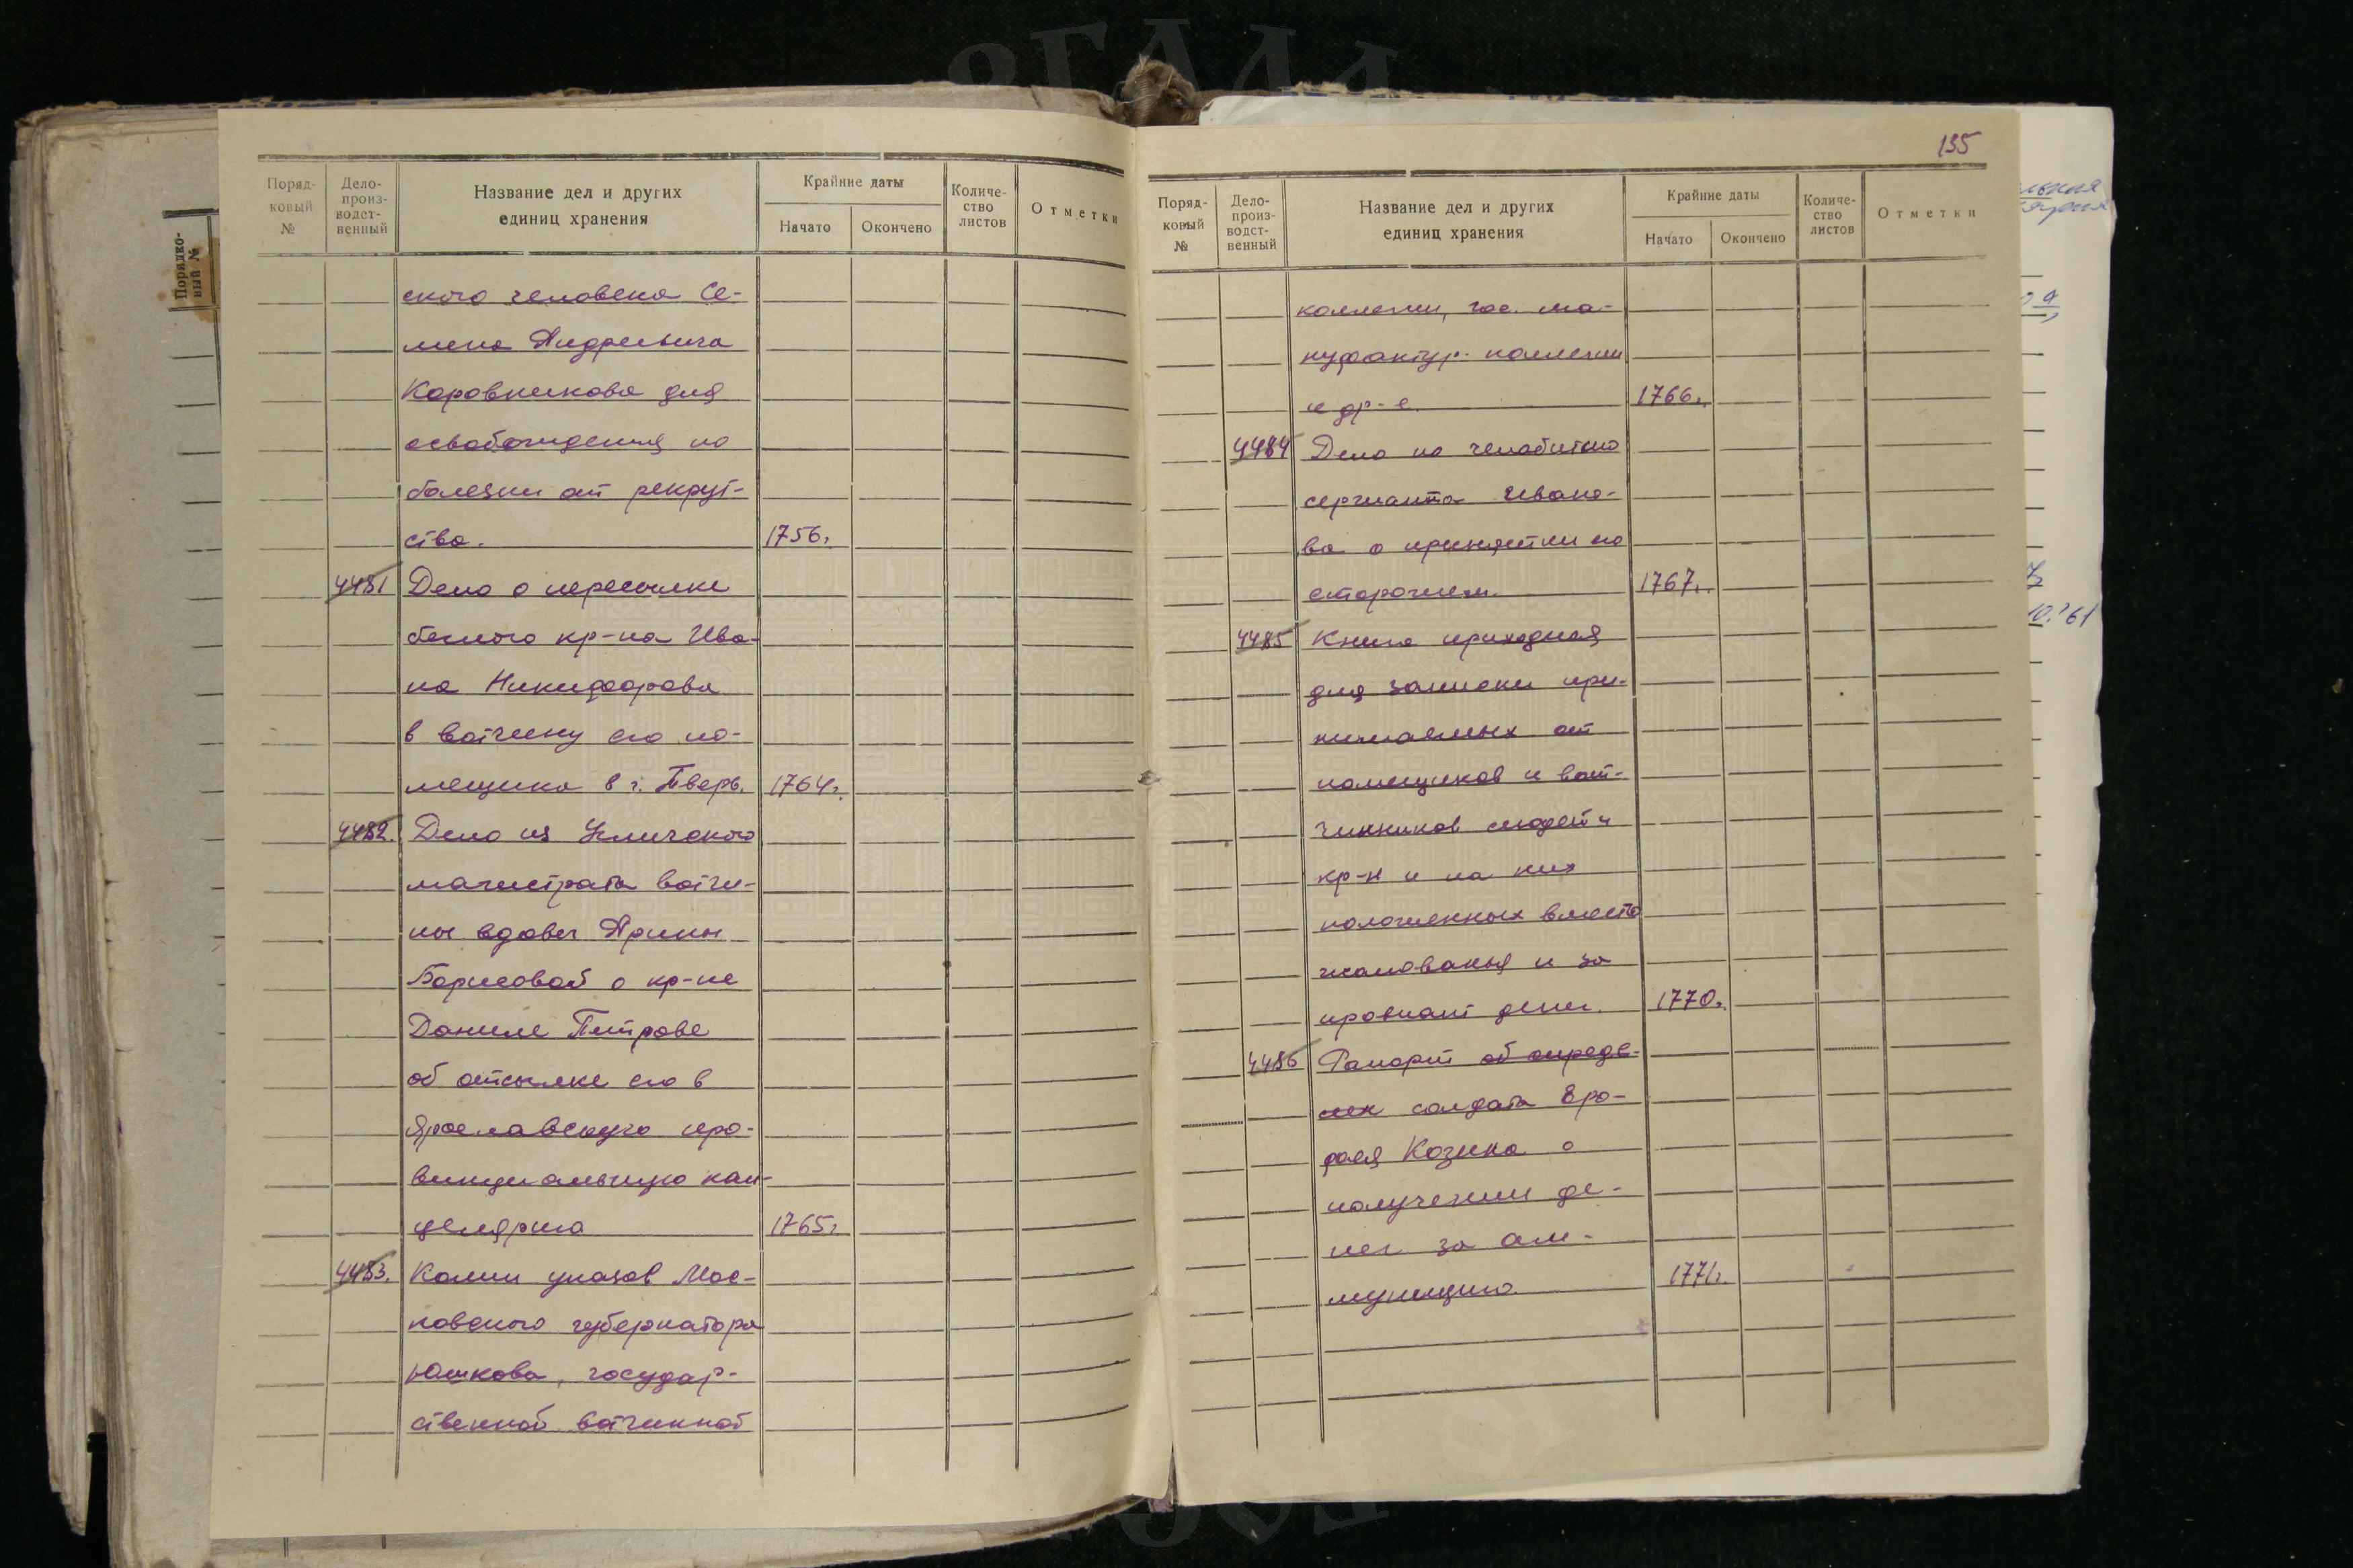 Поряд-
ковый
№
Дело-
произ-
водст-
венный
Название дел и других
единиц хранения
Крайние даты
Начато
Окончено
Количе-
ство
листов
Отметки
ского человека Се-
мена Андреевича
Коровникова для
освобождения по
болезни от рекрут-
ства. 1756г.
4481 Дело о пересылке
беглого кр-на Ива-
на Никифорова
в вотчину его по-
мещика в г. Тверь. 1764г.
4482. Дело из Угличского
магистрата вотчи-
ны вдовы Арины
Борисовой о кр-не
Даниле Петрове
об отсылке его в
Ярославскую про-
винциальную кан-
целярию 1765г.
4483. Копии указов Мос-
ковского губернатора
Юшкова, государ-
ственной вотчинной
135
Поряд-
ковый
№
Дело-
произ-
водст-
венный
Название дел и других
единиц хранения
Крайние даты
Начато
Окончено
Количе-
ство
листов
Отметки
коллегии, гос. ма-
нуфактур. коллегии
и др-е. 1766г.
4484 Дело по челобитью
сержанта Ивано-
ва о принятии его
сторожем. 1767г.
4485 Книга приходная
для записки при-
нимаемых от
помещиков и вот-
чинников людей и
кр-н и на них
положенных вместо
жалованья и за
провиант денег. 1770г.
4486 Рапорт об опреде-
лен солдата Еро-
фея Козина о
получении де-
нег за аму-
муницию. 1771г.
Порядко-
вый №